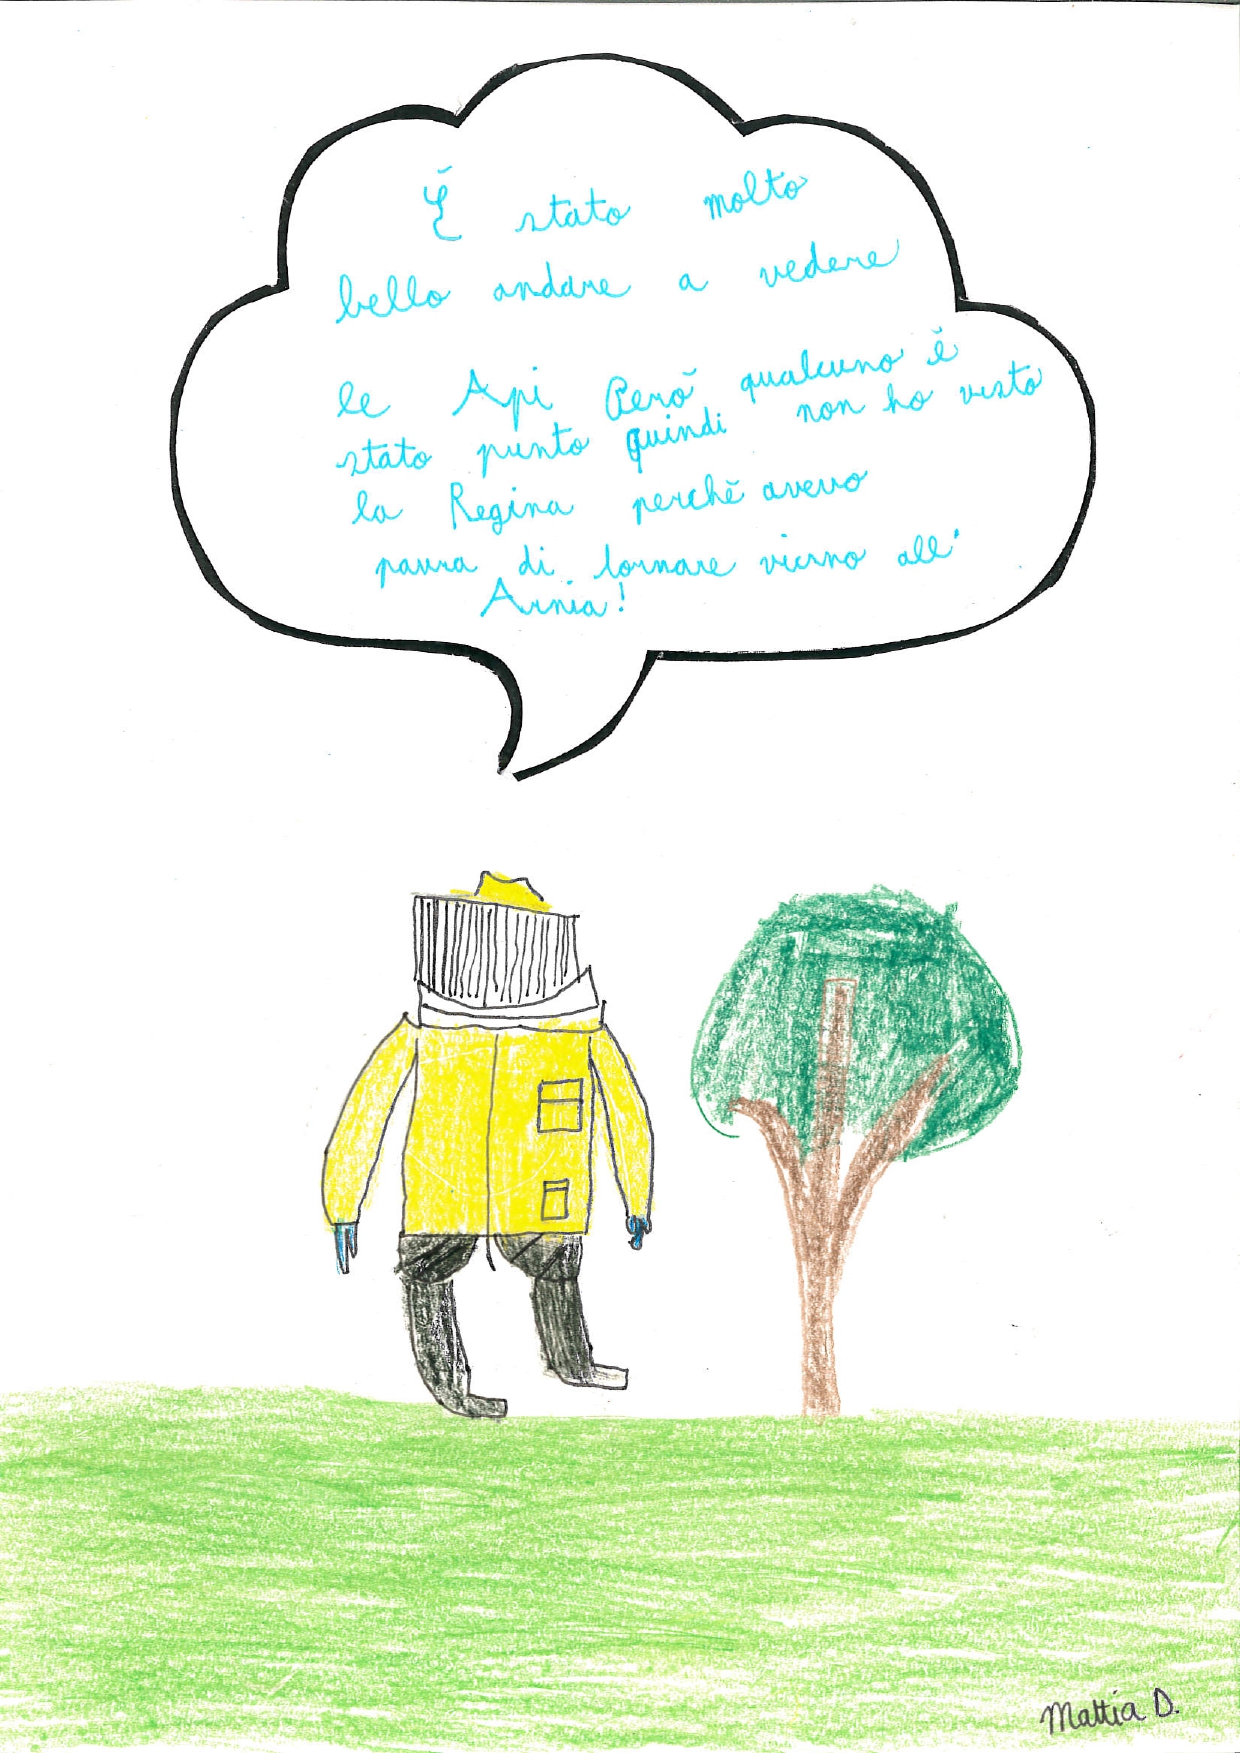 È stato molto
bello andare a vedere
le Api Però qualcuno è
stato punto quindi non ho visto
la Regina perchè avevo
paura di tornare vicino all'
Arnia!
Mattia D.